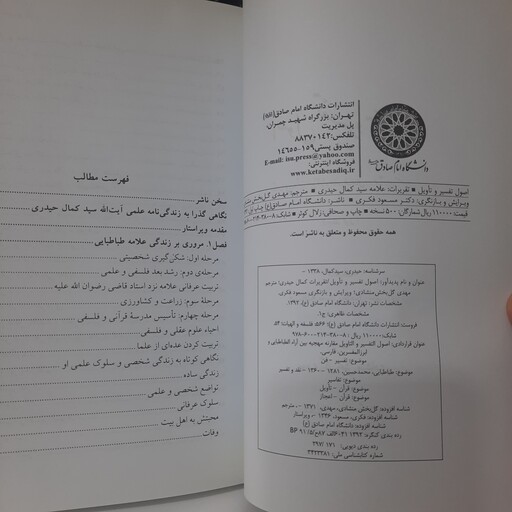 انتشارات دانشگاه امام صادق(ع)
تهران: بزرگراه شهید چمران،
پل مدیریت
تلفکس: ۸۸۳۷۰۱۴۲
صندوق پستی ۱۵۹-۱۴۶۵۵
E-mail: isu.press@yahoo.com
فروشگاه اینترنتی:
www.ketabesadiq.ir
دانشگاه امام صادق
اصول تفسیر و تأویل ▪ تقریرات: علامه سید کمال حیدری ▪ مترجم: مهدی گل‌بخش‌منشادی
ویرایش و بازنگری: دکتر مسعود فکری ▪ ناشر: دانشگاه امام صادق(ع)
قیمت: ۱۱۰۰۰۰ ریال شمارگان: ۵۰۰ نسخه ▪ چاپ و صحافی: زلال کوثر ▪ شابک:
همه حقوق محفوظ و متعلق به ناشر است.
سرشناسه: حیدری، سیدکمال، ۱۳۳۸ -
عنوان و نام پدیدآور: اصول تفسیر و تأویل/تقریرات کمال حیدری؛ مترجم
مهدی گل‌بخش‌منشادی؛ ویرایش و بازنگری مسعود فکری.
مشخصات نشر: تهران: دانشگاه امام صادق (ع)، ۱۳۹۲.
مشخصات ظاهری: ج۱.
فروست: انتشارات دانشگاه امام صادق (ع)؛ ۵۶۶. فلسفه و الهیات؛ ۵۴
شابک: ۱۱۰۰۰۰ ریال: ۸-۳۸۰-۲۱۴-۶۰۰-۹۷۸
عنوان قراردادی: اصول التفسیر و التاویل مقارنه منهجیه بین آراء الطباطبایی و
ابرزالمفسرین. فارسی.
موضوع: تفسیر - فن
موضوع: طباطبایی، محمدحسین، ۱۲۸۱ - ۱۳۶۰ - نقد و تفسیر
موضوع: تفاسیر
موضوع: قرآن - تأویل
موضوع: قرآن - اعجاز
شناسه افزوده: گل‌بخش منشادی، مهدی، ۱۳۷۱ -، مترجم
شناسه افزوده: فکری، مسعود، ۱۳۴۶ -، ویراستار
شناسه افزوده: دانشگاه امام صادق (ع)
رده بندی کنگره: ۱۳۹۲
رده بندی دیویی: ۲۹۷/ ۱۷۱
شماره کتابشناسی ملی: ۳۴۲۳۳۸۱
فهرست مطالب
سخن ناشر
نگاهی گذرا به زندگی‌نامه علمی آیت‌الله سید کمال حیدری
مقدمه ویراستار
فصل۱. مروری بر زندگی علامه طباطبایی
مرحله اول: شکل‌گیری شخصیتی
مرحله‌ی دوم: رشد بعد فلسفی و علمی
تربیت عرفانی علامه نزد استاد قاضی رضوان الله علیه
مرحله سوم: زراعت و کشاورزی
مرحله چهارم: تأسیس مدرسهٔ قرآنی و فلسفی
احیاء علوم عقلی و فلسفی
تربیت کردن عده‌ای از علما
نگاهی کوتاه به زندگی شخصی و سلوک علمی او
زندگی ساده
تواضع شخصی و علمی
سلوک عرفانی
محبتش به اهل بیت
وفات